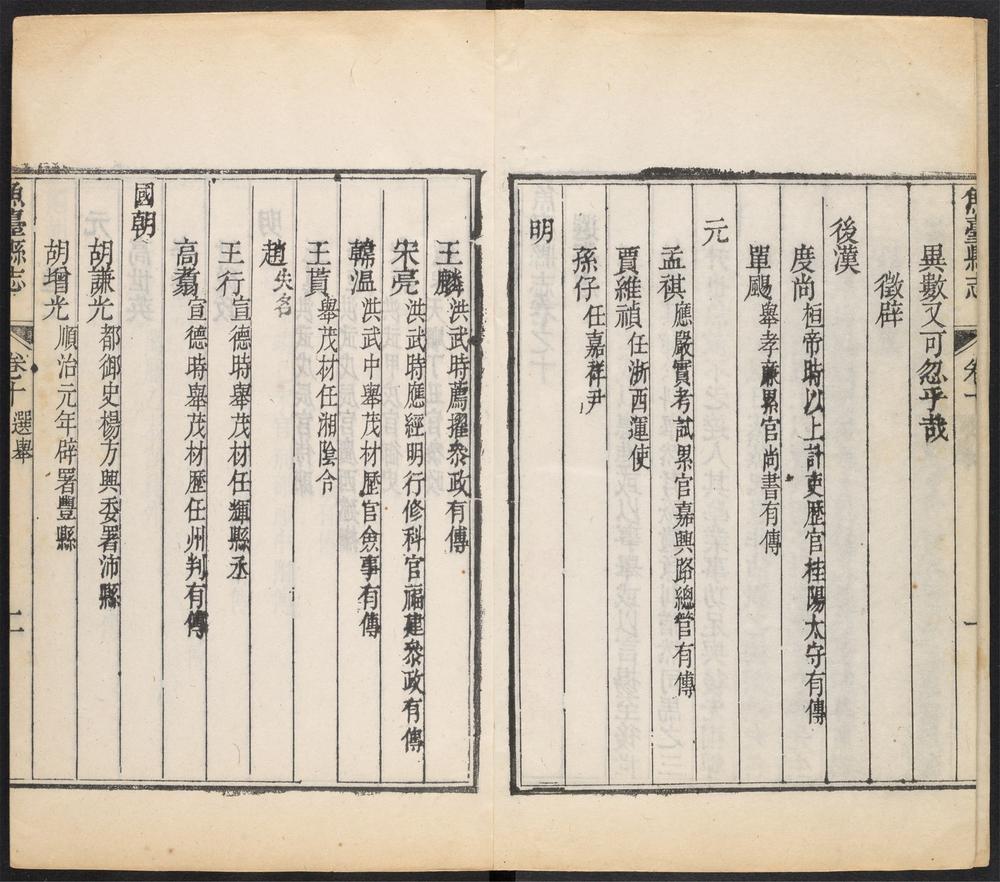 魚臺縣志 卷十 一
異數又可忽乎哉
徵辟
後漢
度尚 桓帝時以上計吏歷官桂陽太守有傳
單颺 舉孝廉累官尚書有傳
元
孟祺 應嚴實考試累官嘉興路總管有傳
賈維禎 任浙西運使
孫仔 任嘉祥尹
明
王麟 洪武時薦擢叅政有傳
宋亮 洪武時應經明行修科官福建叅政有傳
韓溫 洪武中舉茂材歷官僉事有傳
王貢 舉茂材任湘陰令
趙 失名
王行 宣德時舉茂材任輝縣丞
高翥 宣德時舉茂材歷任州判有傳
國朝
胡謙光 都御史楊方興委署沛縣
胡增光 順治元年辟署豐縣
魚臺縣志 卷十 選舉 二